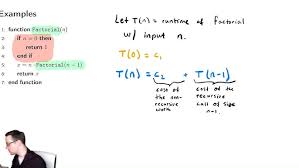 Examples
1: function Factorial(n)
2: if n = 0 then
3: return 1
4: end if
5: x = n · Factorial(n − 1)
6: return x
7: end function
Let T(n) = runtime of factorial
w/ input n.
T(0) = c₁
T(n) = c₂ + T(n-1)
cost of the non-recursive work
cost of the recursive call of size n-1.